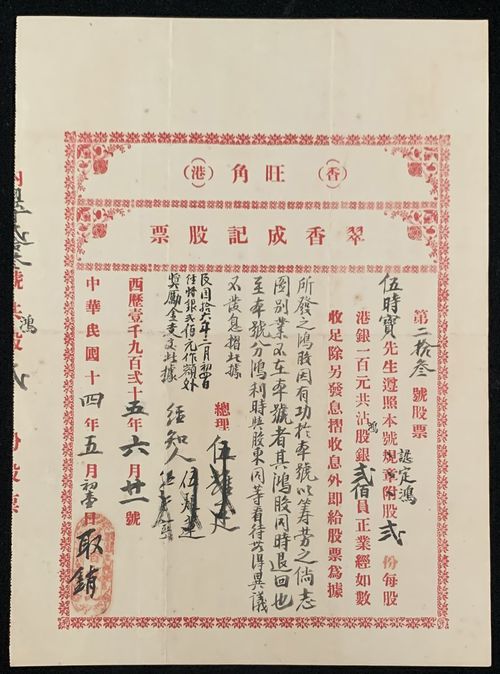 （香）旺角（港）
翠香成記股票
第二拾叁號股票
議定鴻
伍時寶先生遵照本號規章附股弍份每股
鴻
港銀一百元共沾股銀弍佰員正業經如數
收足除另發息摺收息外即給股票為據
所發之鴻股因有功於本號以筹劳之倘志
圖別業不在本號者其鴻股同時退回也
至本號分鴻利時與股東同等看待毋得異議
不發息摺此據
總理 伍耀廷
經知人 伍耀廷
民國拾六年二月初
獎勵金支此據
西歷壹千九百弍十五年六月廿一號
中華民國十四年五月初壹日
取銷